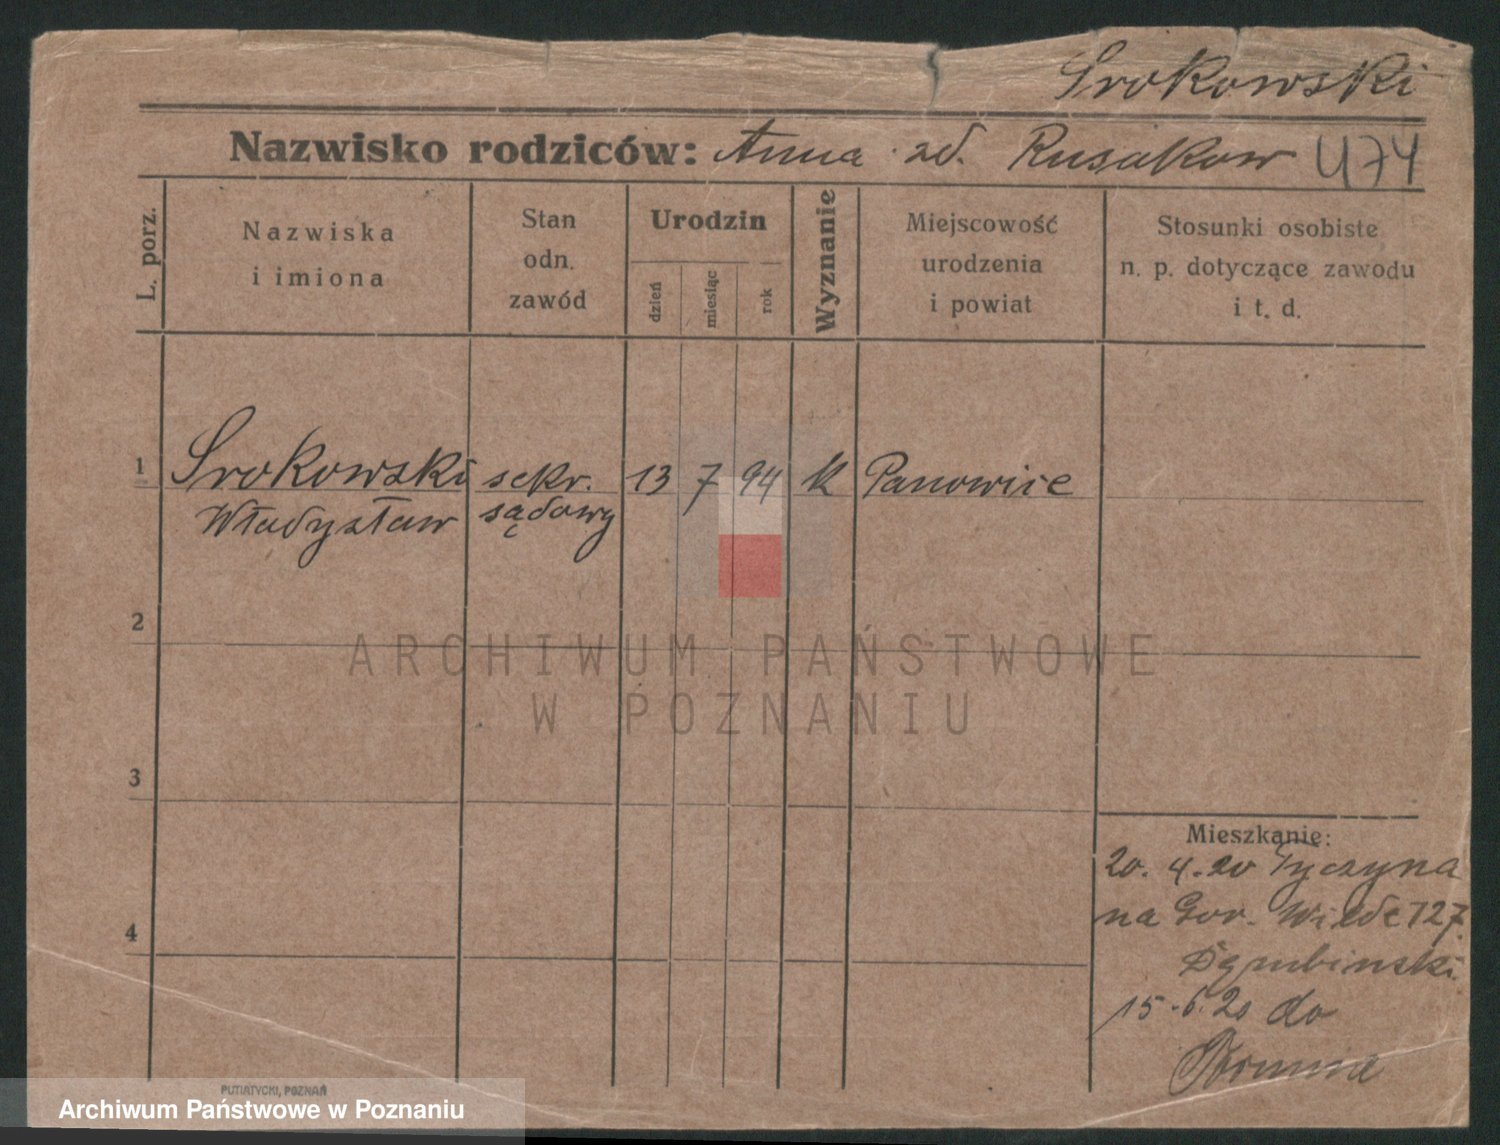 Srokowski
Nazwisko rodziców: Anna zd. Rusakow 474
L. porz.
Nazwiska
i imiona
Stan
odn.
zawód
Urodzin
dzień
miesiąc
rok
Wyznanie
Miejscowość
urodzenia
i powiat
Stosunki osobiste
n. p. dotyczące zawodu
i t. d.
1 Srokowski sekr. 13 7 94 k Panowice
Władysław sądowy
2
ARCHIWUM PAŃSTWOWE
W POZNANIU
3
Mieszkanie:
20. 4. 20 Tyczyna
na Gór. Wilde 127.
4
15.6.20 do
PUTIATYCKI, POZNAŃ
Archiwum Państwowe w Poznaniu